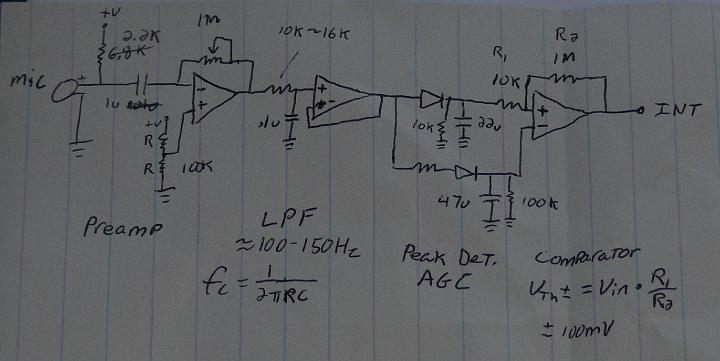 +V
2.2K
6.8K
mic
1u
+V
R
R
100K
1M
10K ~ 16K
.1u
10K
22u
47u
100K
R1
10K
R2
1M
INT
Preamp
LPF
≈100-150Hz
fc = 1/2πRC
Peak Det.
AGC
Comparator
VTh± = Vin · R1/R2
± 100mV